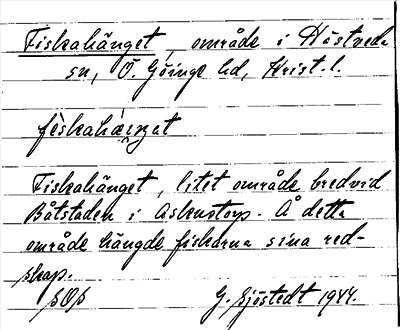 Fiskahänget, område i Hästveda
sn, Ö. Göinge hd, Krist. l.
fèskahæ̀ŋət
Fiskahänget, litet område bredvid
Båtstaden i Askenstorp. Å detta
område hängde fiskarna sina red-
skap.
sOs G. Sjöstedt 1944.